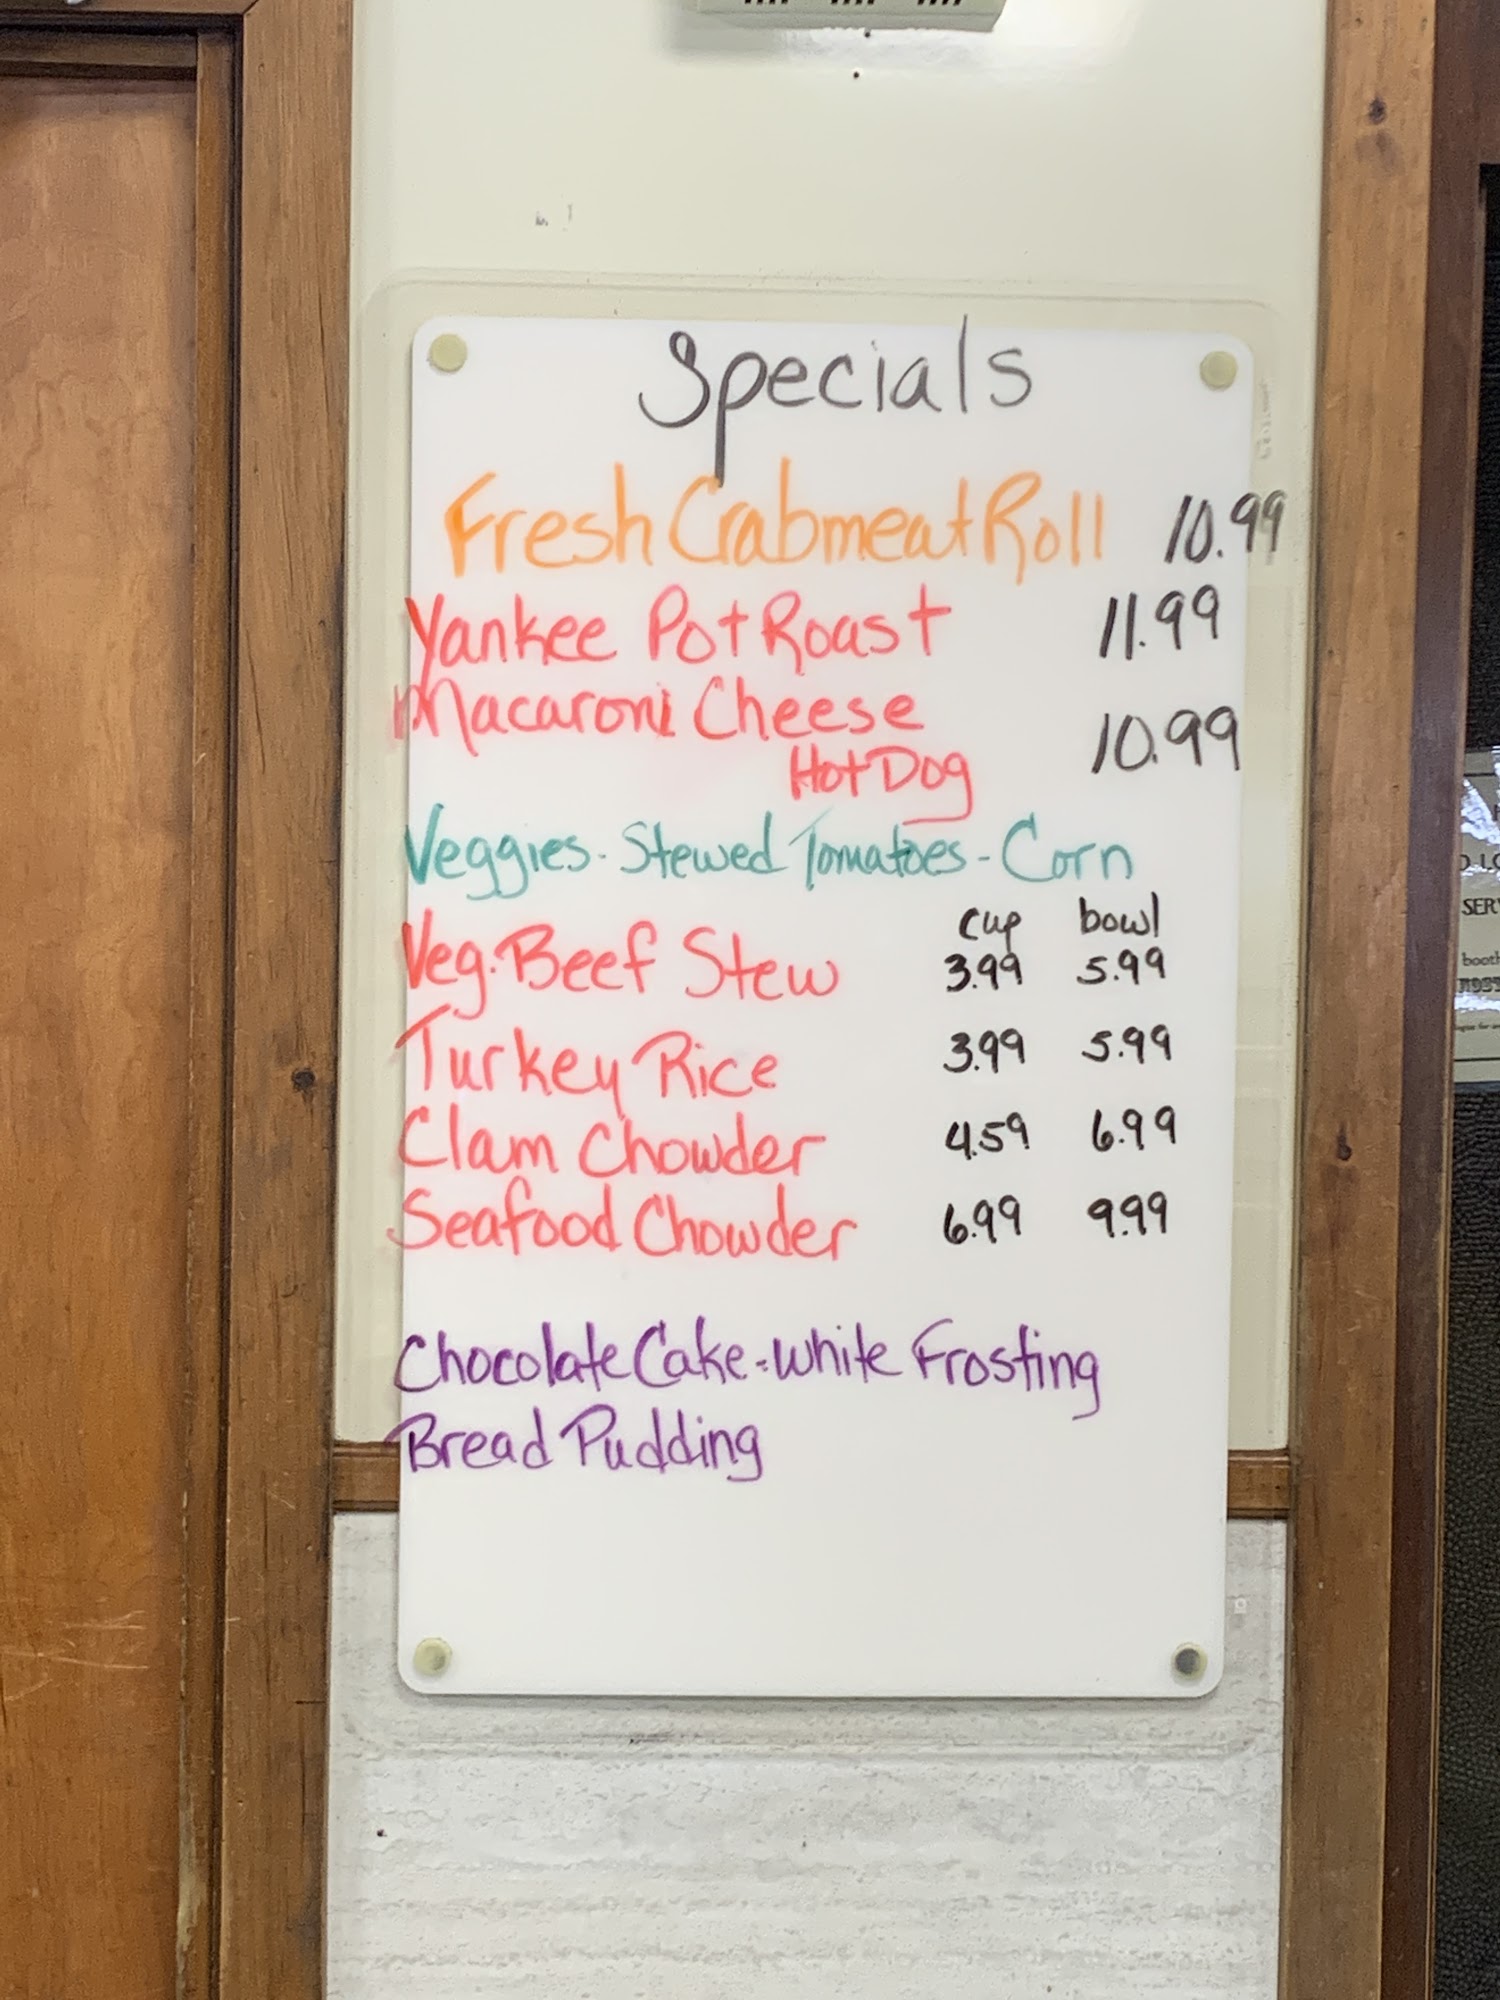 Specials
Fresh Crabmeat Roll 10.99
Yankee Pot Roast 11.99
Macaroni Cheese
Hot Dog 10.99
Veggies - Stewed Tomatoes - Corn
cup bowl
Veg. Beef Stew 3.99 5.99
Turkey Rice 3.99 5.99
Clam Chowder 4.59 6.99
Seafood Chowder 6.99 9.99
Chocolate Cake - White Frosting
Bread Pudding
SER
booth